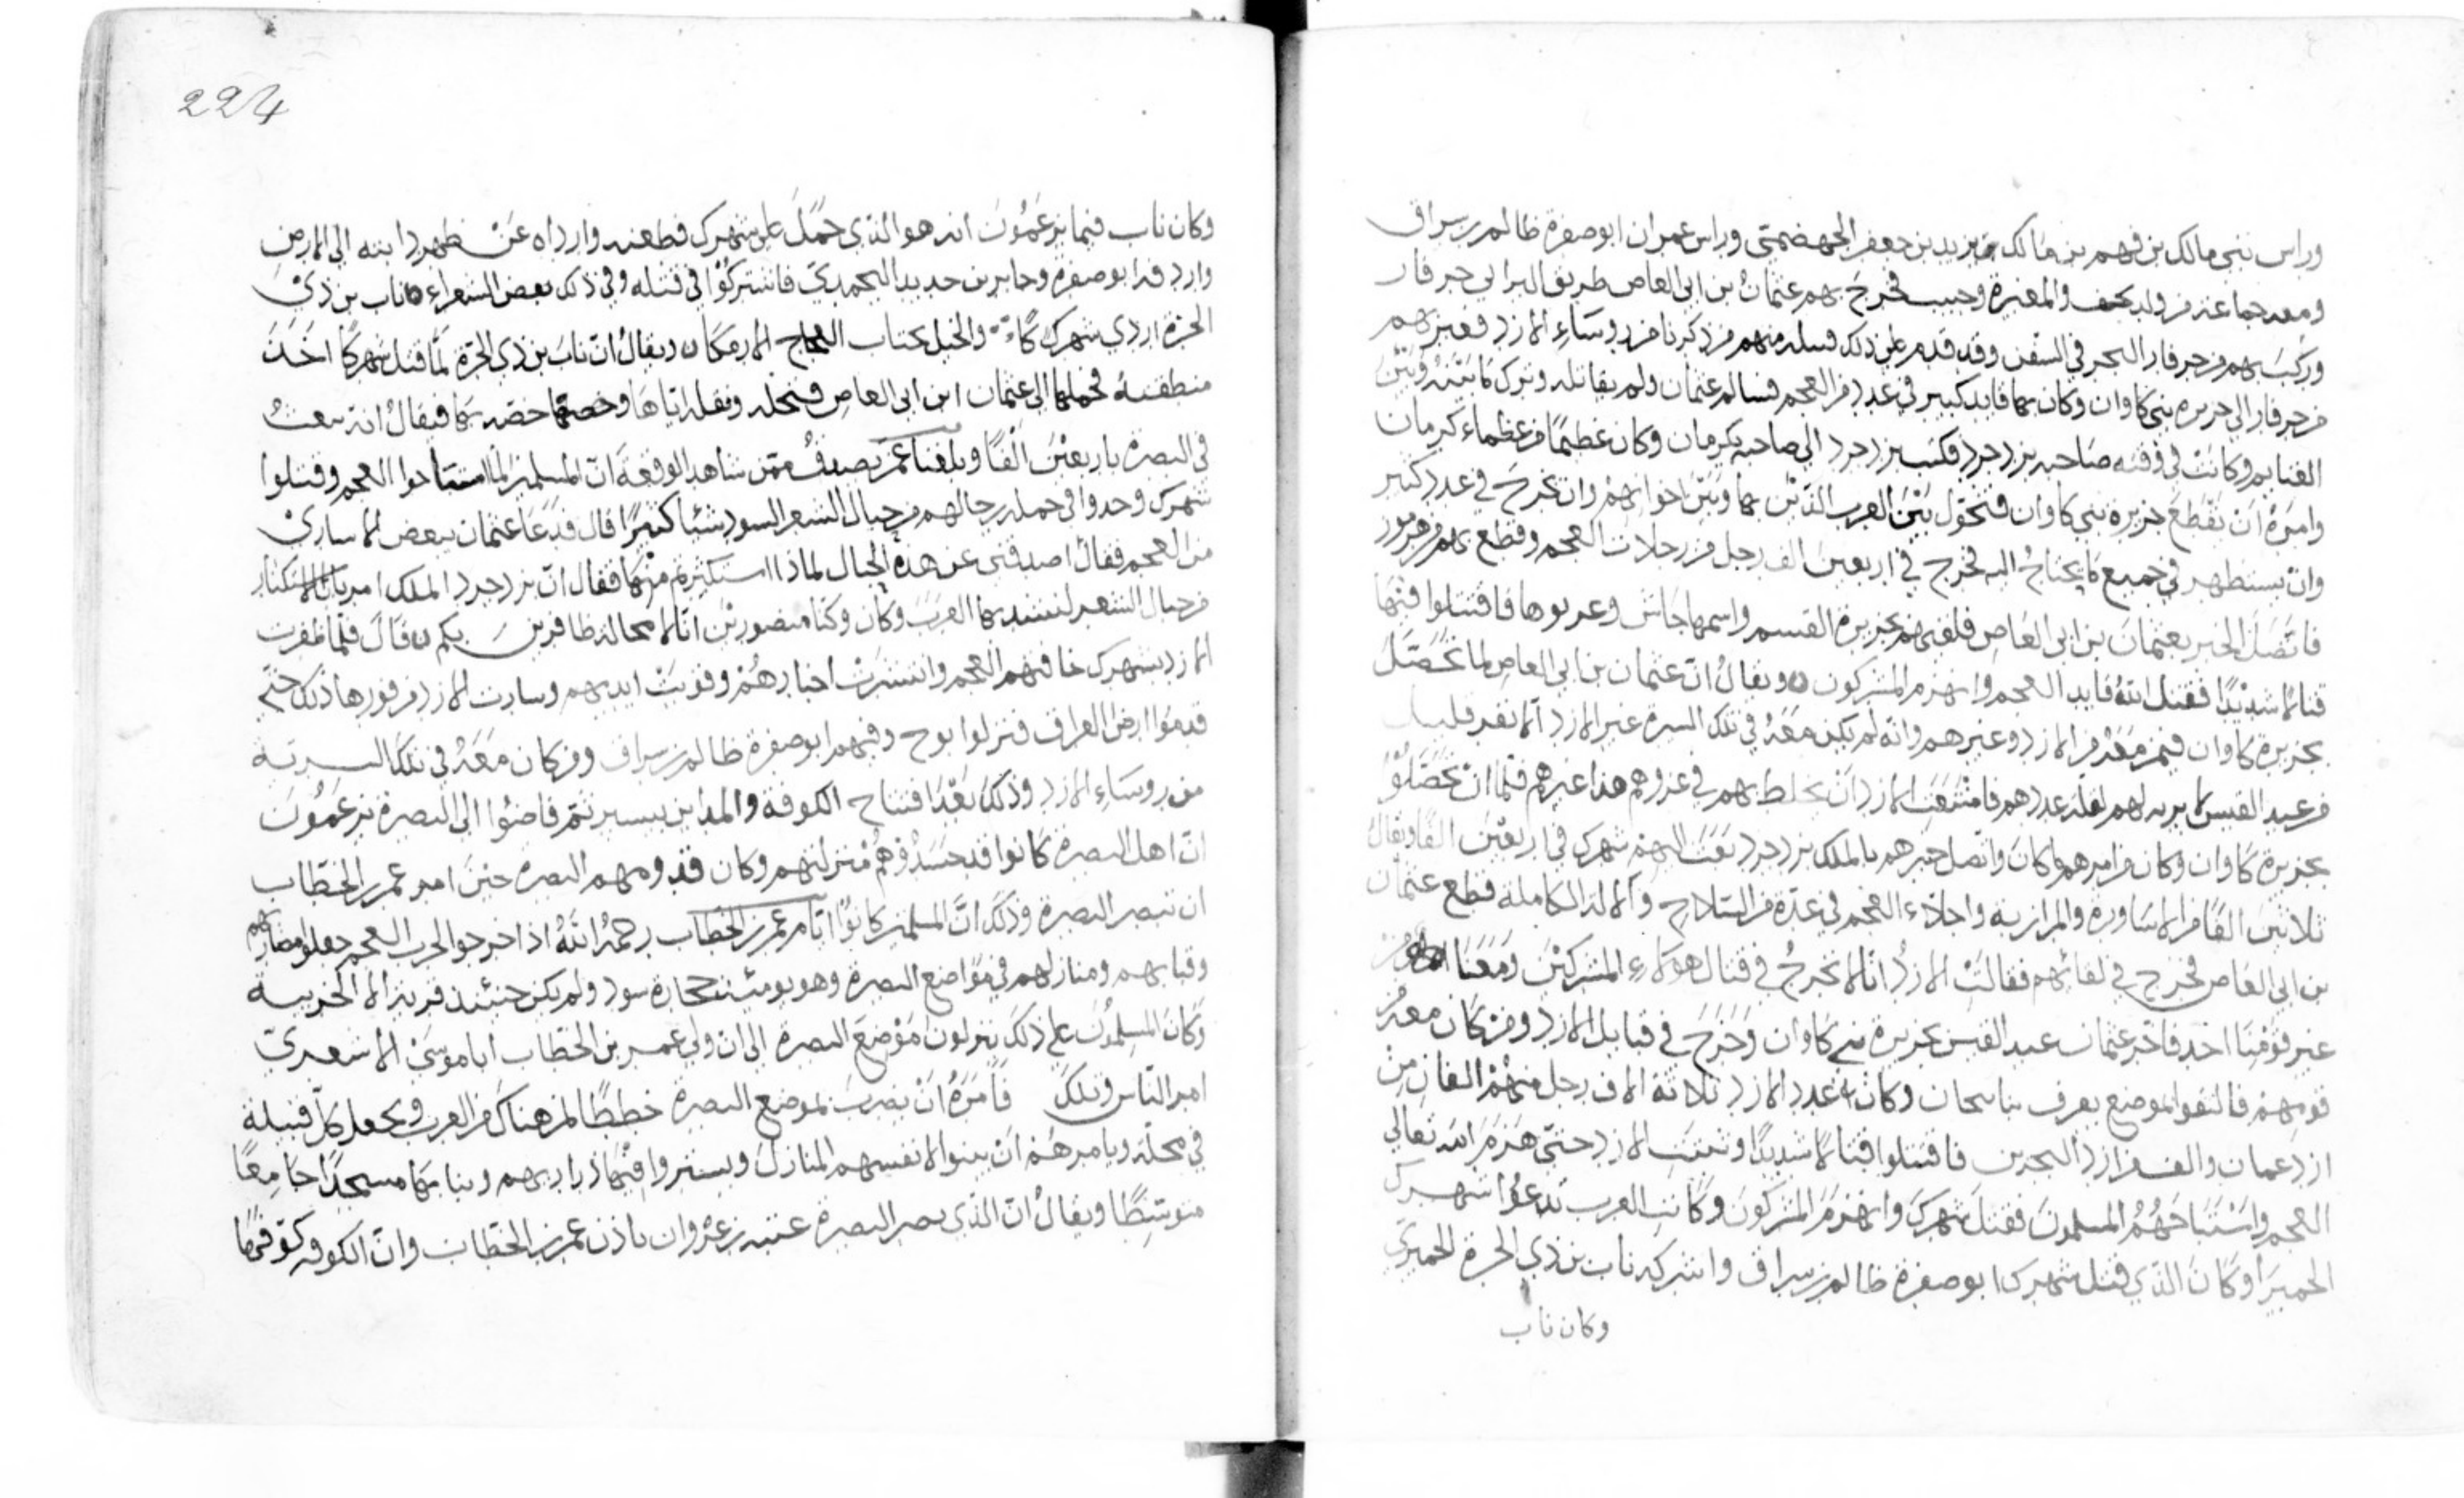 وراس بني مالك بن فهم بن مالك يزيد بن جعفر الجهضمي وراس عمران ابو صفرة ظالم بن سراق
ومعه جماعة من ولده والمغيرة وحبيب فخرج بهم عثمان بن ابي العاص طريق البر الى جرفار
وركب بهم من جرفار البحر في السفن وقد قدم على ذلك منهم من ذكرنا من روساء الازد فعبر بهم
من جرفار الى جزيرة بني كاوان وكان بها قايد كبير في عدد من العجم فسالم عثمان ولم يقاتله وترك ما بينه وبين
وكانت في وقته صاحبه يزدجرد فكتب يزدجرد الى صاحبه بكرمان وكان عظيما من عظماء كرمان
وامره ان يقطع جزيرة بني كاوان فتحول بين العرب الذين بها وبين اخوانهم وان يخرج في عدد كثير
وان يستظهر في جميع ما يحتاج اليه فخرج في اربعين الف رجل من رجلات العجم وقطع بهم من هرموز
فاتصل الخبر بعثمان بن ابي العاص فلقيهم بجزيرة القسم واسمها جاش وعربوها فاقتتلوا فيها
قتالا شديدا فقتل الله قايد العجم وانهزم المشركون ويقال ان عثمان بن ابي العاص لما تحصل
بجزيرة كاوان فيمن معه من الازد وغيرهم وانه لم يكن معه في تلك السرة غير الازد الا نفر قليل
من عبد القيس لقلة عددهم فامتنعت الازد ان يخلط بهم في غزوهم هذا غيرهم فلما ان تحصلوا
بجزيرة كاوان وكان من امرهم ما كان واتصل خبرهم بالملك يزدجرد بعث اليهم شهرك في اربعين الفا ويقال
ثلاثين الفا من الاساورة والمرازبة واجلاء العجم في عدة من السلاح والالة الكاملة فقطع عثمان
بن ابي العاص فخرج في لقائهم فقالت الازد انا لا نخرج في قتال هولاء المشركين ومعنا
غير قومنا احد فاخر عثمان عبد القيس بجزيرة بني كاوان وخرج في قبايل الازد ومن كان معه
قومهم فالتقوا بموضع يعرف وكان عدد الازد ثلاثة الاف رجل منهم الفان من
ازد عمان والف من ازد البحرين فاقتتلوا قتالا شديدا وثبتت الازد حتى هزم الله تعالى
العجم واستباحهم المسلمون فقتل شهرك وانهزم المشركون وكانت العرب تدعوا شهرك
الحميرا وكان الذي قتل شهرك ابو صفرة ظالم بن سراق واشركه ناب بن ذي الحرة الحميري
وكان ناب
224
وكان ناب فيما يزعمون انه هو الذي حمل على شهرك فطعنه وارداه عن ظهر دابته الى الارض
واردفه ابو صفرة وجابر بن حديد اليحمدي فاشتركوا في قتله وفي ذلك بعض الشعراء ناب بن ذي
الحرة اردى شهركا والخيل العجاج ويقال ان ناب بن ذي الحرة لما قتل شهركا اخذ
منطقته فحملها الى عثمان ابن ابي العاص اياها وخصه بها فيقال انه بيعت
في البصرة باربعين الفا وبلغنا عمن يصدق ممن شاهد الوقعة ان المسلمين لما استباحوا العجم وقتلوا
شهرك وجدوا في جملة رحالهم من حبال الشعر السود شيئا كثيرا قال فدعا عثمان ببعض الاسارى
من العجم فقال اصدقني عن هذه الحبال لماذا استكثرتم منها فقال ان يزدجرد الملك امر بالاستكثار
من حبال الشعر لنشد بها العرب وكان وكنا منصورين انا لا محالة ظافرين بكم قال فلما ظفرت
الازد بشهرك خافتهم العجم وانتشرت اخبارهم وقويت ايديهم وسارت الازد من فورها ذلك حتى
قدموا ارض العراق فنزلوا بوج وفيهم ابو صفرة ظالم بن سراق ومن كان معه في تلك السرية
من روساء الازد وذلك بعد افتتاح الكوفة والمداين بيسير ثم فاضوا الى البصرة يزعمون
ان اهل البصرة كانوا قد حسدوهم منزلتهم وكان قدومهم البصرة حين امر عمر بن الخطاب
ان تبصر البصرة وذلك ان المسلمين كانوا ايام عمر بن الخطاب رحمه الله اذا خرجوا لحرب العجم جعلوا مضاربهم
وقبابهم ومنازلهم في مواضع البصرة وهو يومئذ حجارة سود ولم يكن حينئذ قرية الا الخريبة
وكان المسلمون على ذلك ينزلون موضع البصرة الى ان ولي عمر بن الخطاب ابا موسى الاشعري
امر الناس وتلك فامره ان يضرب بموضع البصرة خططا لمن هناك من العرب ويجعل كل قبيلة
في محلة ويامرهم ان يبنوا لانفسهم المنازل ويسيروا فيها ذراريهم وبنا بها مسجدا جامعا
متوسطا ويقال ان الذي بصر البصرة عتبة بن غزوان باذن عمر بن الخطاب وان الكوفة كوفها